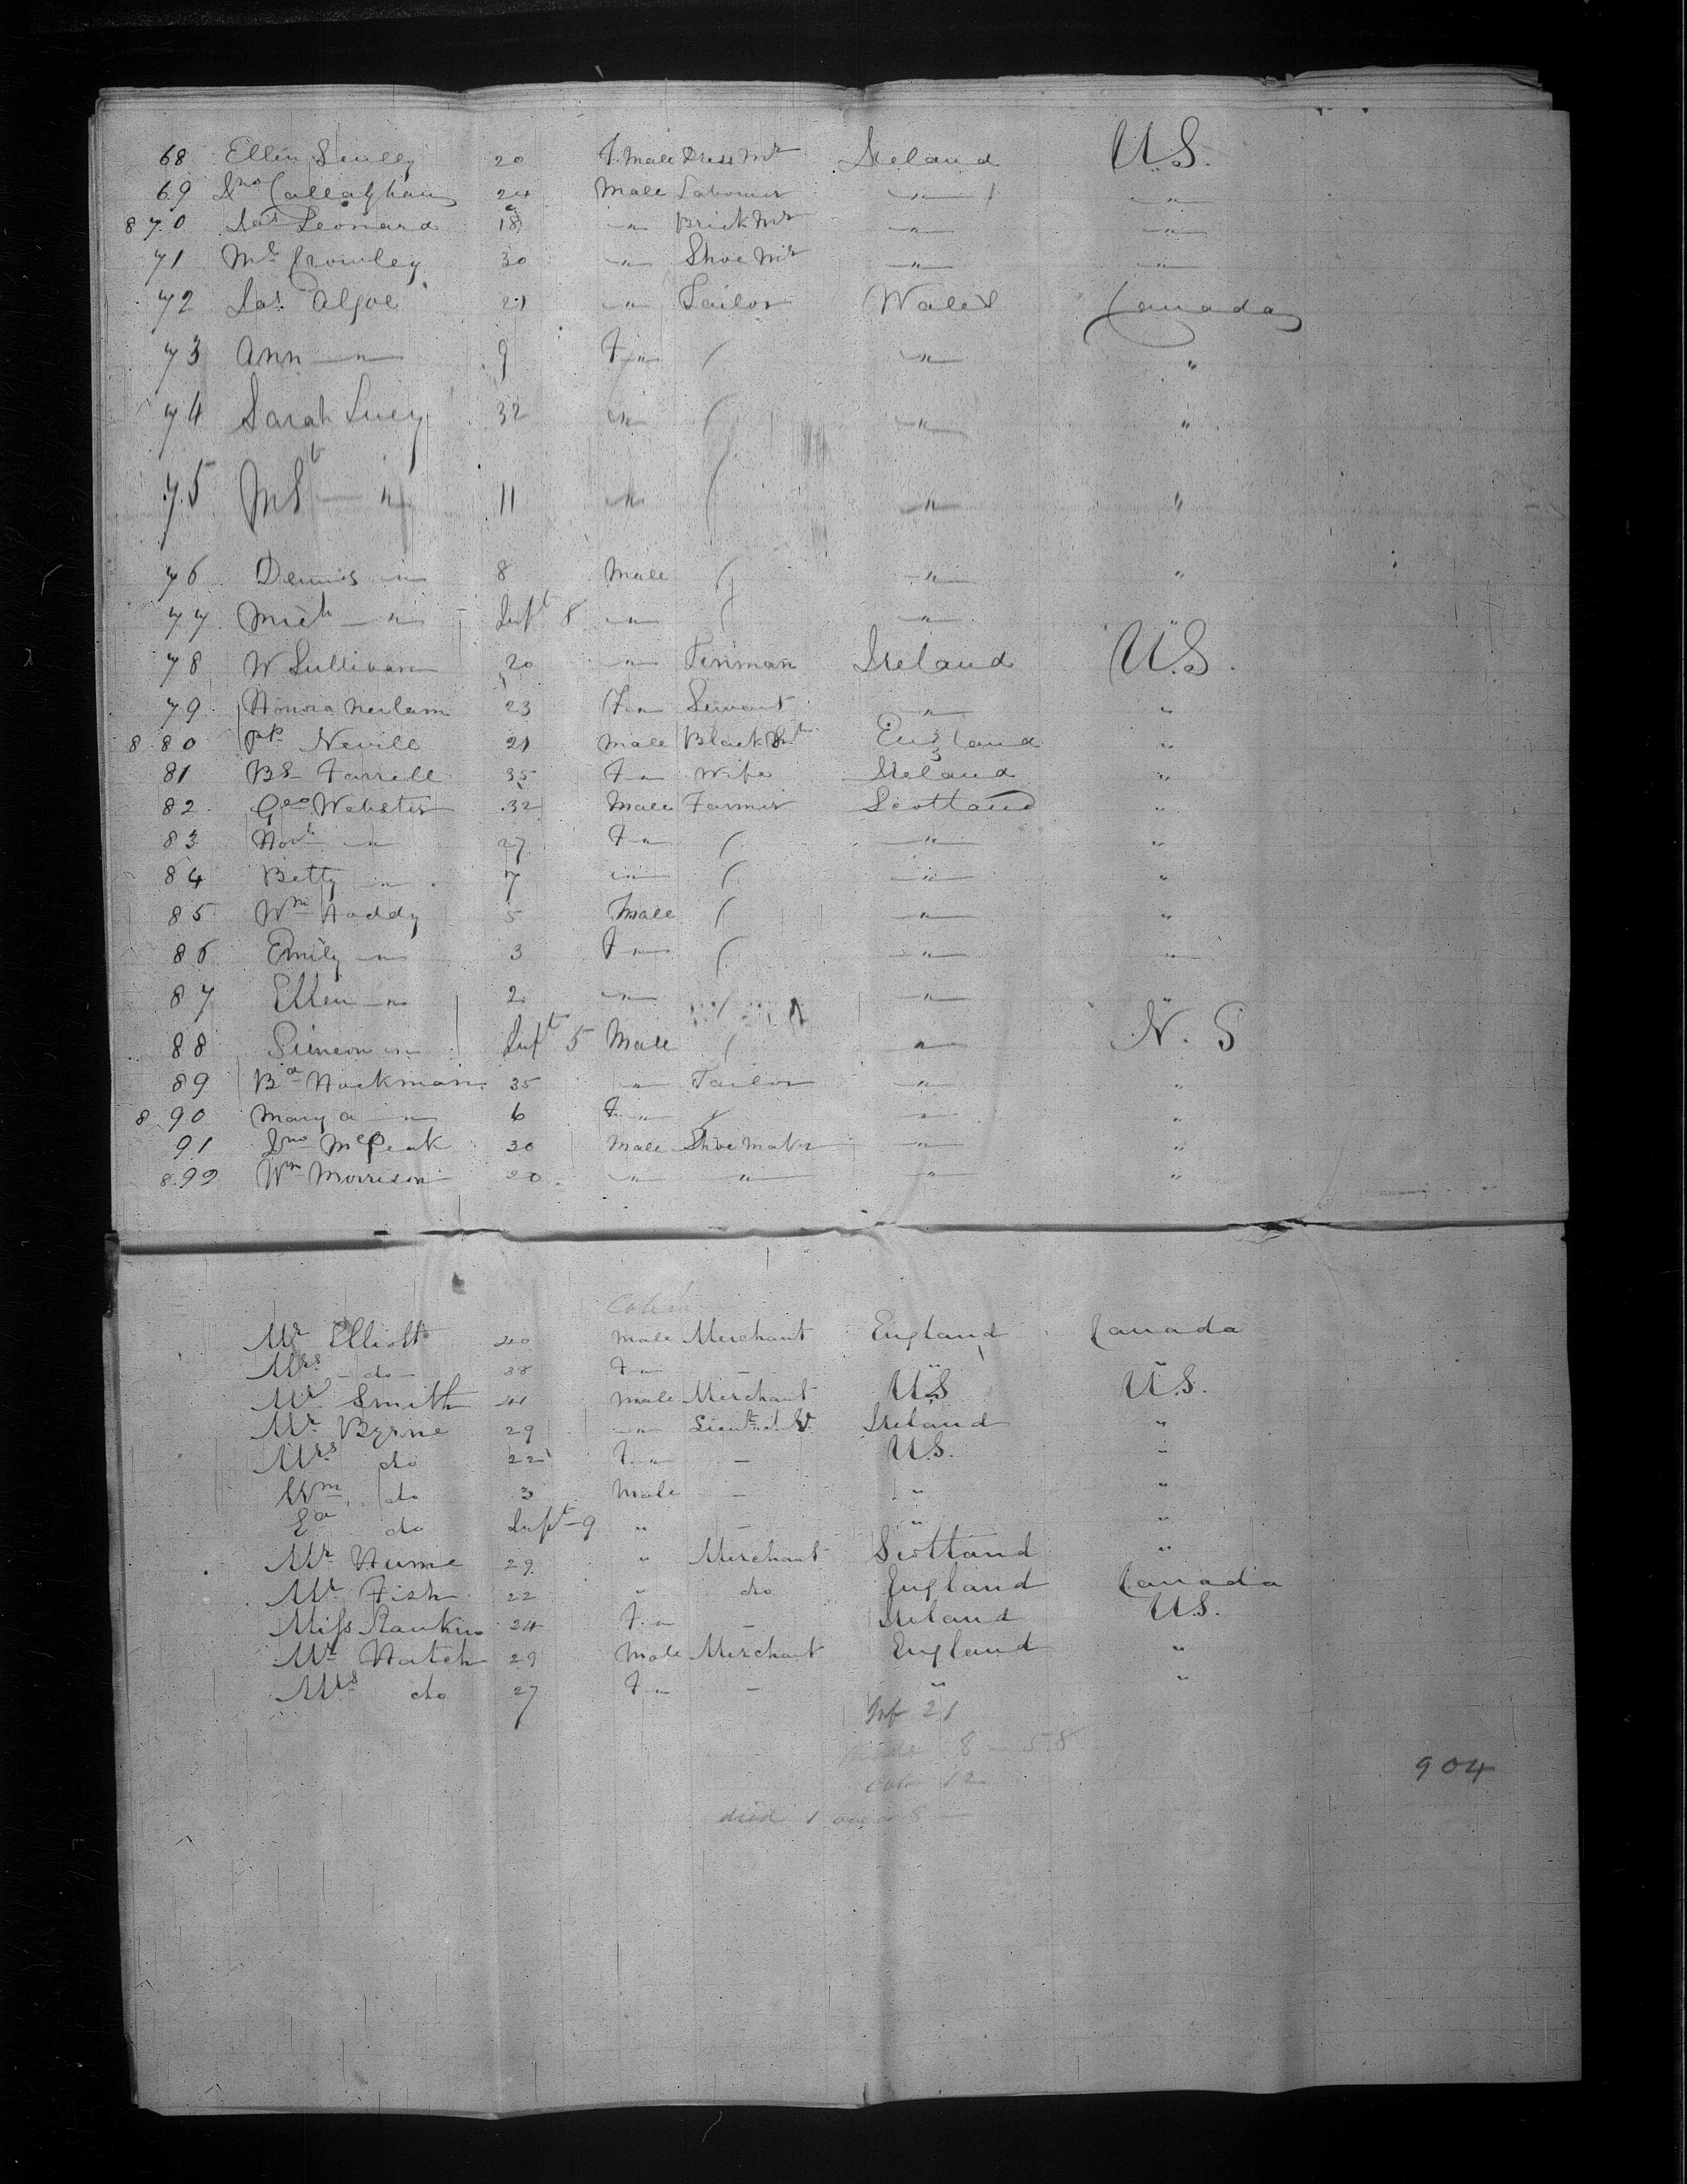 68 Ellen Scully 20 F.Male Dress Mr Ireland U.S.
69 Jno Callaghan 24 Male Labourer " "
870 Jas Leonard 18 " Brick Mr " "
71 Ml Crowley 30 " Shoe Mr " "
72 Jas Algoe 21 " Tailor Wales Canada
73 Ann " 9 F " " "
74 Sarah Lucy 32 " " "
75 Mgt " 11 " " "
76 Dennis " 8 Male " "
77 Mich " Inft 8 " "
78 W Sullivan 20 " Penman Ireland U.S.
79 Honora 23 F " Servant " "
880 Pk Nevill 21 Male Black Smt England "
81 Bt Farrell 35 F " Wife Ireland "
82 Geo Webster 32 Male Farmer Scotland "
83 " 27 F " " "
84 Betty " 7 " " "
85 Wm Haddy 5 Male " "
86 Emily " 3 F " " "
87 Ellen " 2 " "
88 Simeon " Inft 5 Male " N. S
89 Ba Hackman 35 " Tailor " "
890 Mary a " 6 F " " "
91 Jno McPeak 30 Male Shoe Maker " "
899 Wm Morrison 20 " " " "
Cabin
Mr Elliott 40 Male Merchant England Canada
Mrs - do - 38 F " - " "
Mr Smith 41 Male Merchant U.S U.S.
Mr Byrne 29 " Ireland "
Mrs do 22 F " - U.S. "
Wm do 3 Male - " "
Ea do Inft - 9 " - " "
Mr Hume 29 " Merchant Scotland "
Mr Fish 22 " do England Canada
Miss Rankin 24 F " - Ireland U.S.
Mr Hatch 29 Male Merchant England "
Mrs do 27 F " - " "
Inf 21
8 - 58
Cabn 12
904
died 1 over 8